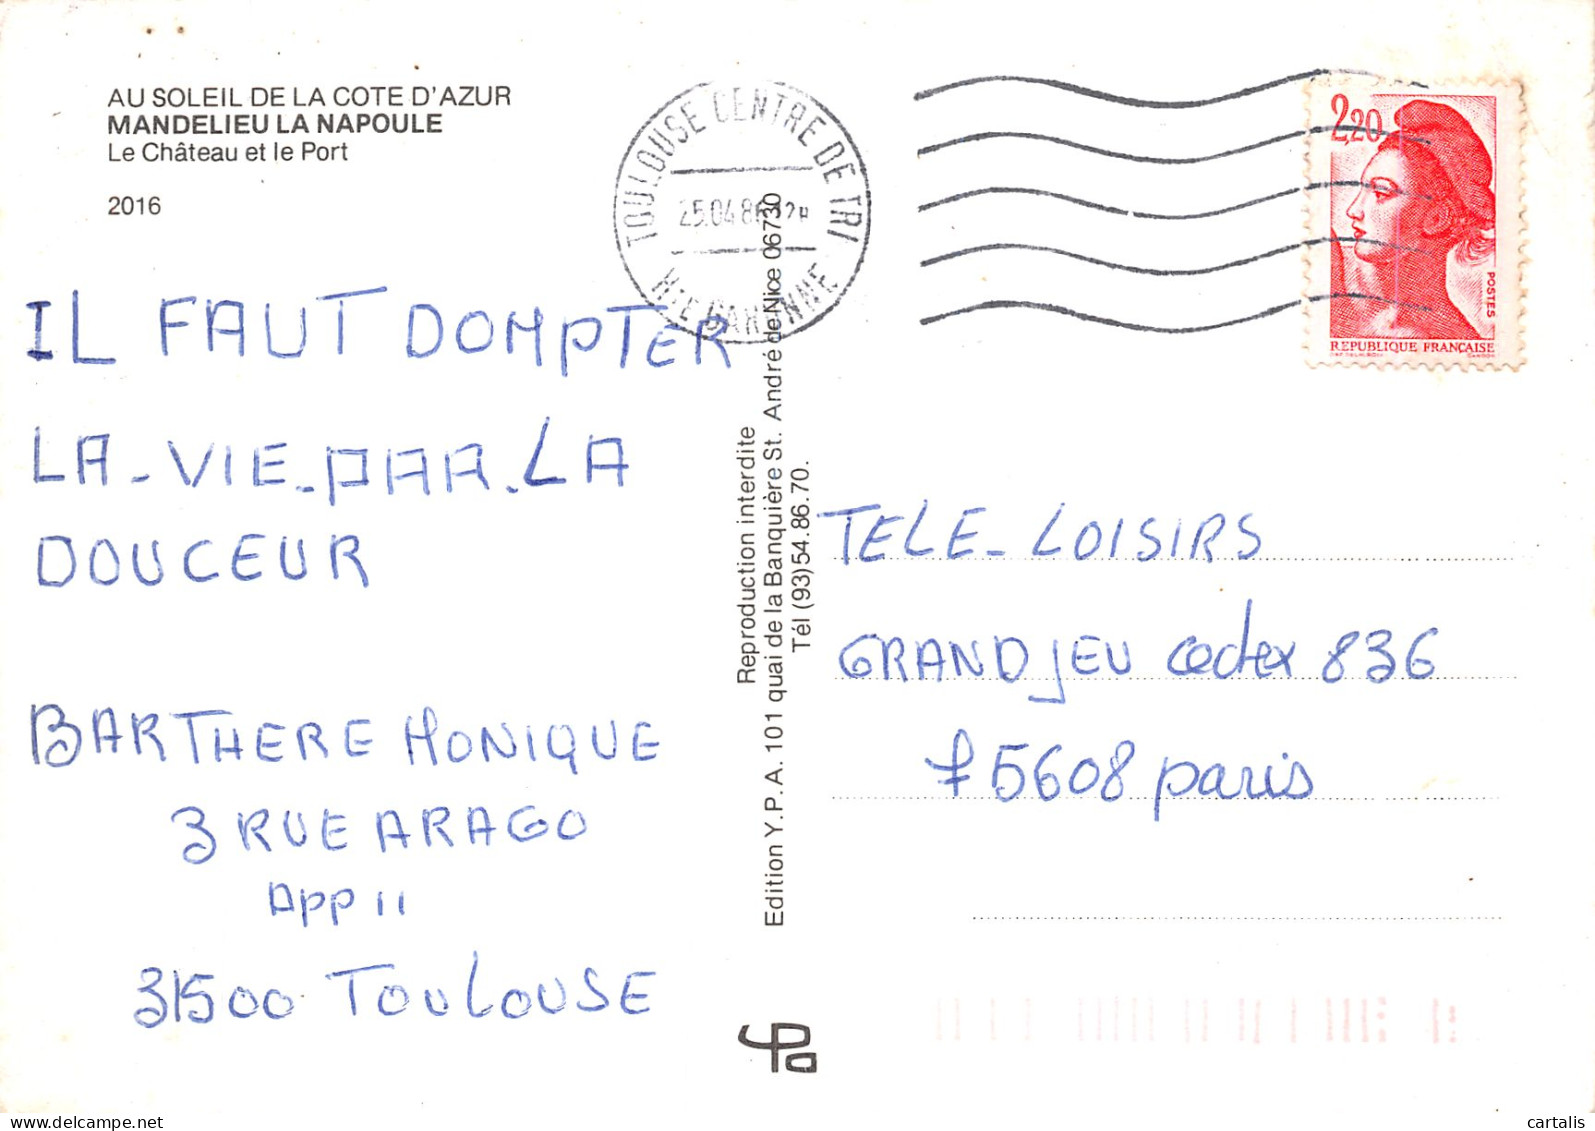 AU SOLEIL DE LA COTE D'AZUR
MANDELIEU LA NAPOULE
Le Château et le Port
2016
TOULOUSE CENTRE DE TRI
25.04.86 12H
HTE GARONNE
2,20
POSTES
REPUBLIQUE FRANÇAISE
GANDON
IL FAUT DOMPTER
LA-VIE-PAR.LA
DOUCEUR
BARTHERE MONIQUE
3 RUE ARAGO
APP 11
31500 TOULOUSE
Reproduction interdite
Edition Y.P.A. 101 quai de la Banquière St. André de Nice 06730
Tél (93)54.86.70.
TELE-LOISIRS
GRAND JEU cedex 836
75608 paris
cartalis
www.delcampe.net